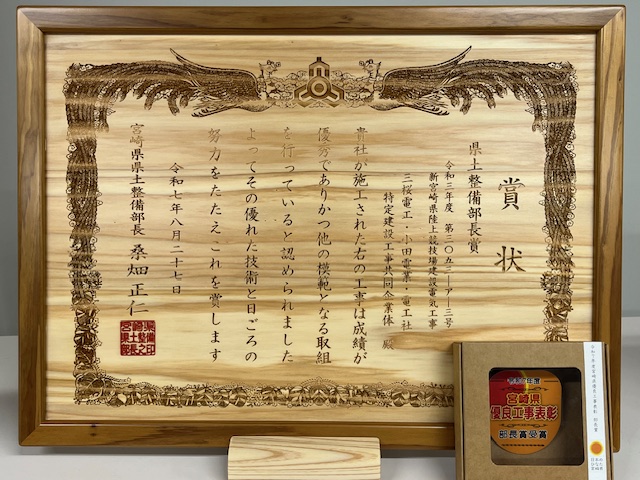 賞状
県土整備部長賞
令和三年度 第二〇五三ーアー三号
新宮崎県陸上競技場建設電気工事
三桜電工・小田電業・電工社
特定建設工事共同企業体 殿
貴社が施工された右の工事は成績が
優秀でありかつ他の模範となる取組
を行っていると認められました
よってその優れた技術と日ごろの
努力をたたえこれを賞します
令和七年八月二十七日
宮崎県県土整備部長 桑畑正仁
宮崎県
優良工事表彰
部長賞受賞